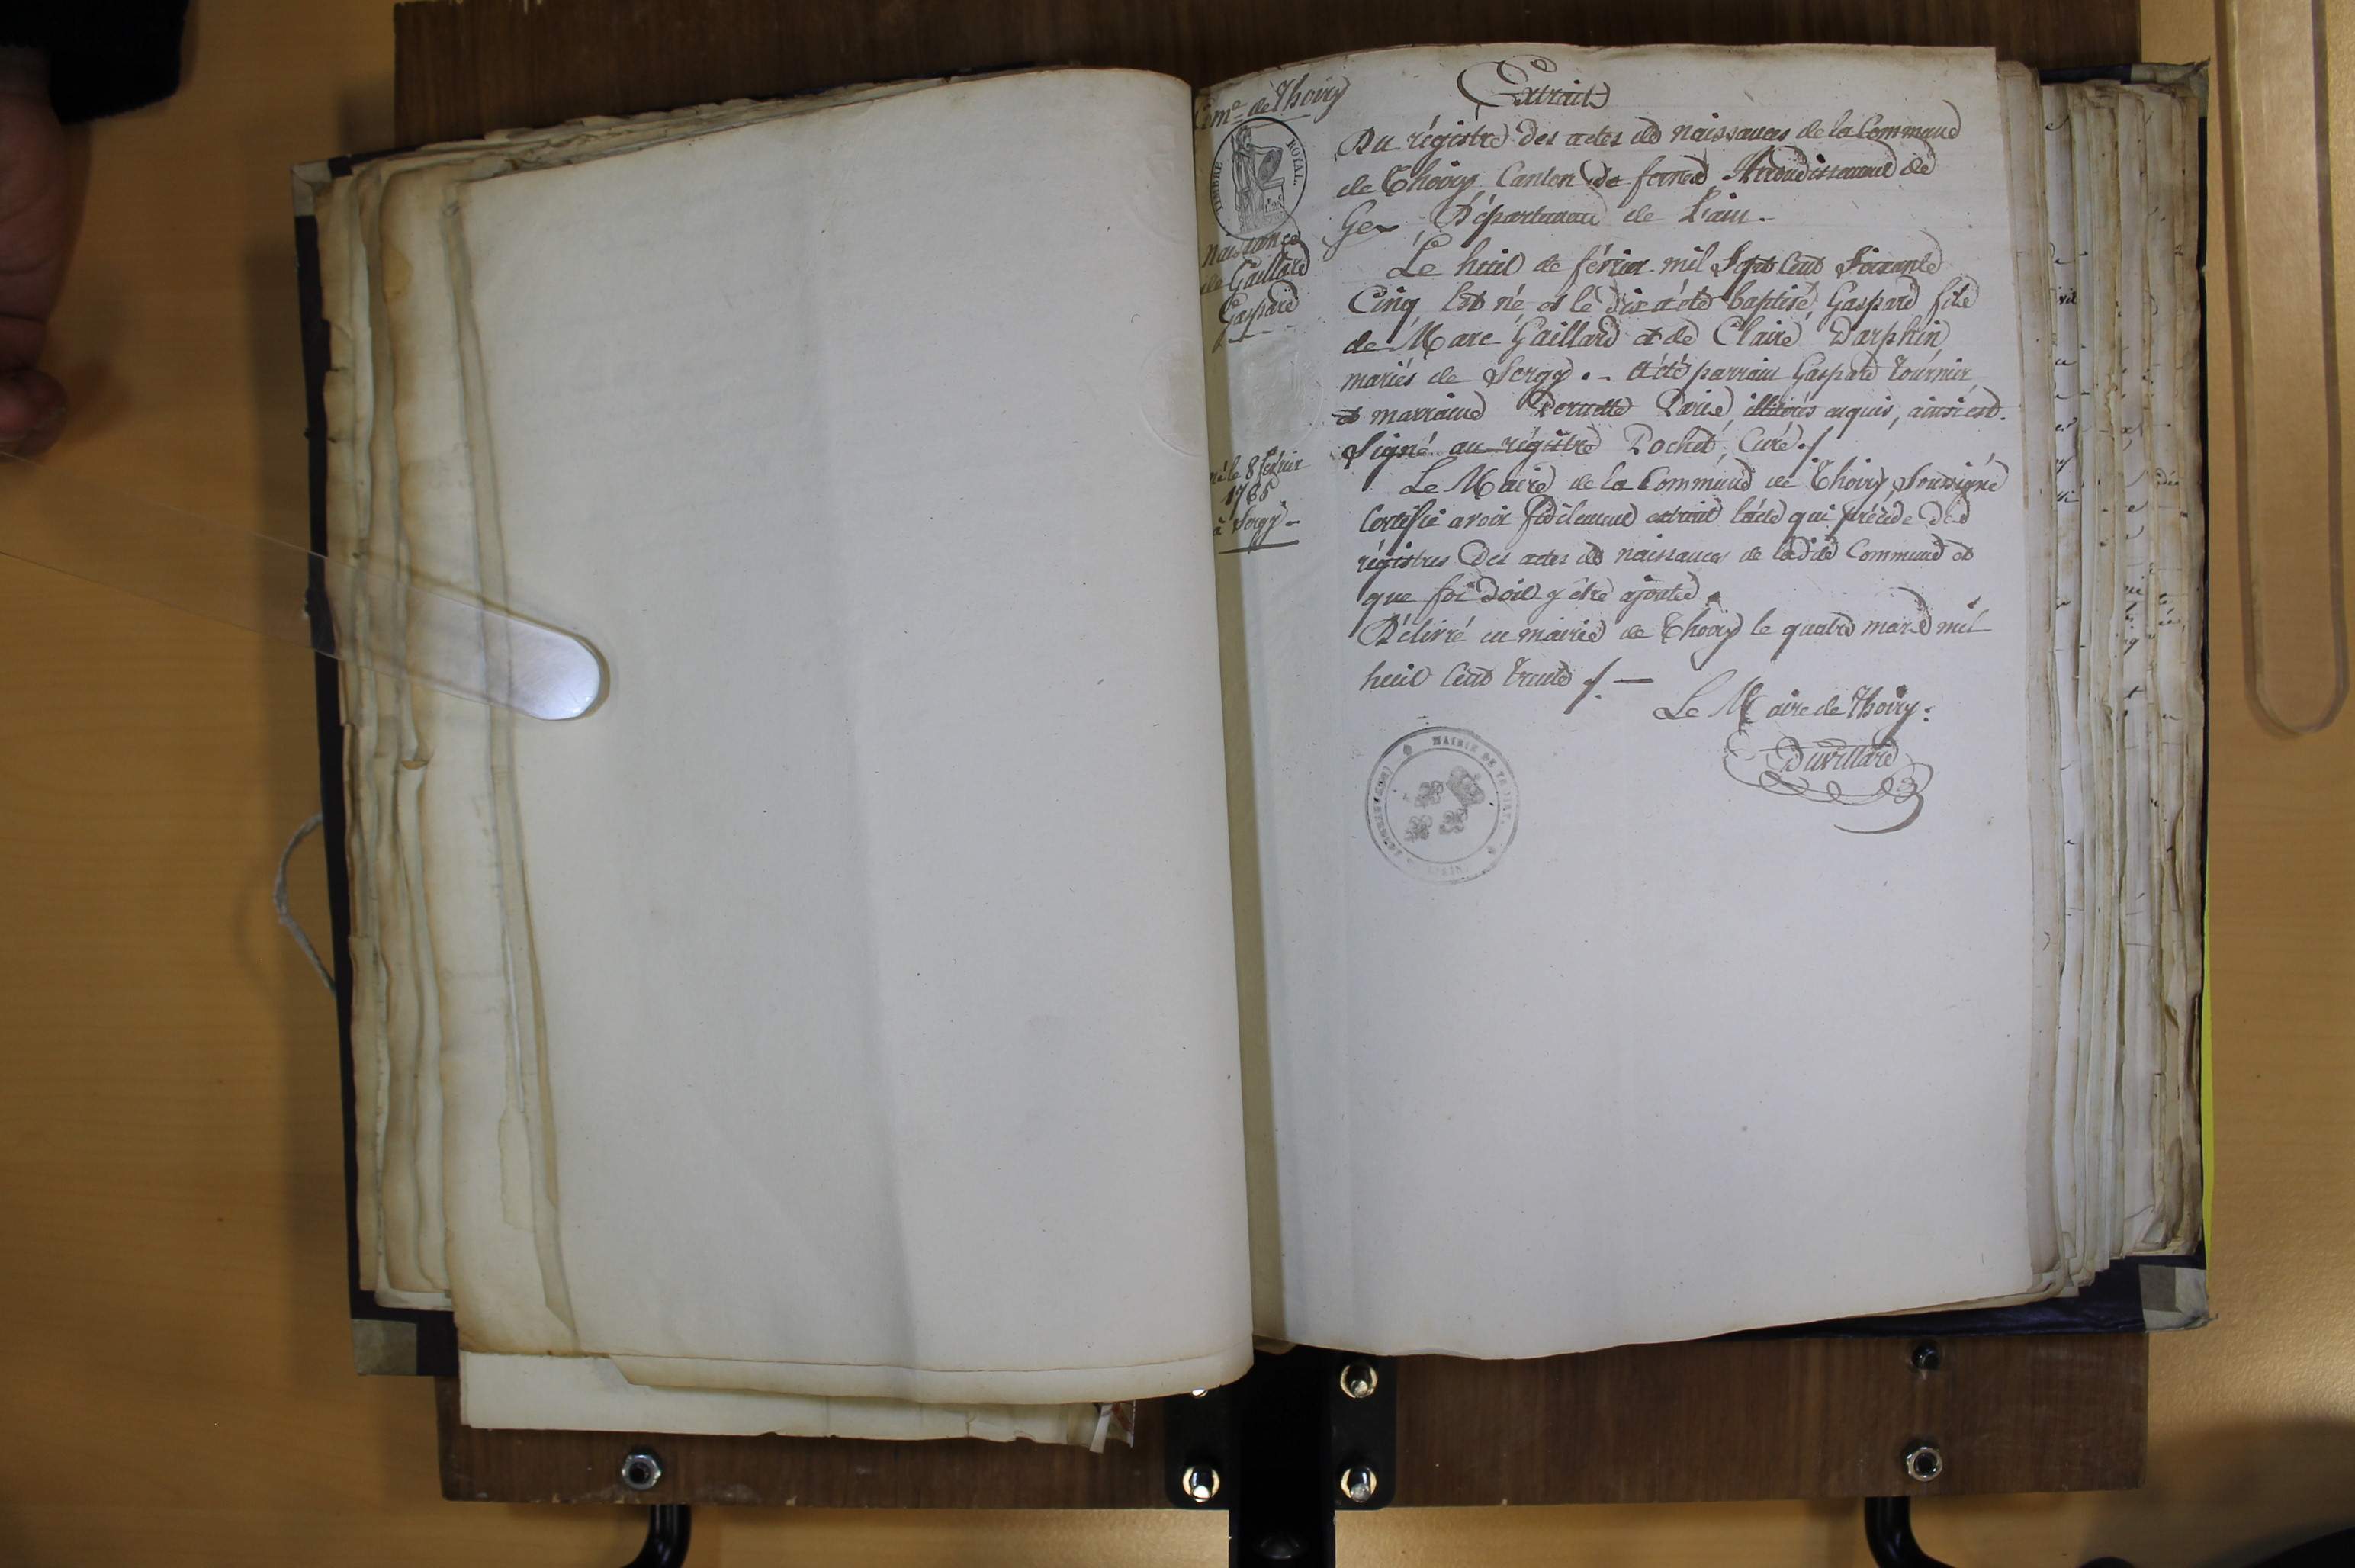 Com.e de Thoiry
TIMBRE ROYAL.
Naissance
de Gaillard
Gaspard
né le 8 février
1765
à Sergy
Extrait
Du régistre des actes de naissances de la Commune
de Thoiry Canton de ferney Arrondissement de
Gex Département de L'ain.
Le huit de février mil Sept Cent Soixante
Cinq Est né et le dix a été baptisé, Gaspard fils
de Marc Gaillard et de Claire Darphin
mariés de Sergy. - A été parrain Gaspard Tournier
et marraine Pernette illitérés enquis, ainsi est.
Signé au régistre Pochet, Curé./
Le Maire de la Commune de Thoiry, Soussigné
Certifie avoir fidèlement extrait l'acte qui précède des
régistres des actes de naissances de ladite Commune et
que foi doit y être ajoutée.
Délivré en mairie de Thoiry le quatre mars mil
huit Cent trente ./. —
Le Maire de Thoiry:
Duvillard
MAIRIE DE THOIRY.